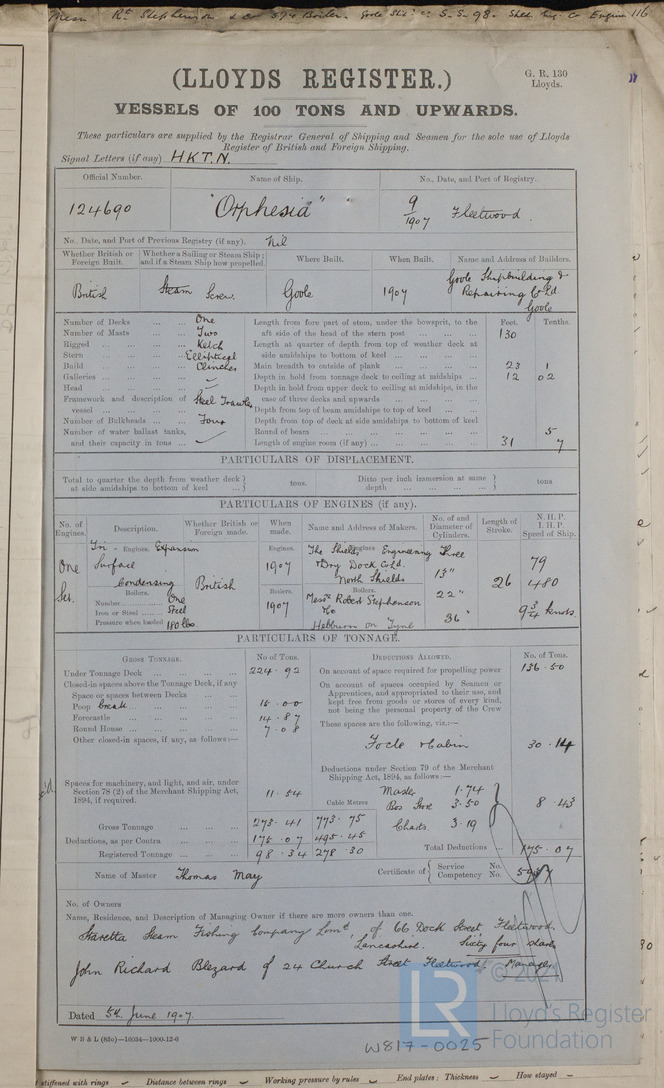 Mem Rt Stephenson & Co 594 Boiler. Goole Shb: Co S.S. 98. Shds Eng. Co Engine 116
(LLOYDS REGISTER.)
G. R. 130
Lloyds.
VESSELS OF 100 TONS AND UPWARDS.
These particulars are supplied by the Registrar General of Shipping and Seamen for the sole use of Lloyds
Register of British and Foreign Shipping.
Signal Letters (if any) H K T. N.
Official Number. Name of Ship. No., Date, and Port of Registry.
124690 "Orphesia" 9/1907 Fleetwood.
No., Date, and Port of Previous Registry (if any). Nil
Whether British or Foreign Built. Whether a Sailing or Steam Ship; and if a Steam Ship how propelled. Where Built. When Built. Name and Address of Builders.
British Steam Screw. Goole 1907 Goole Shipbuilding & Repairing Co Ld. Goole
Number of Decks ... ... One
Number of Masts ... ... Two
Rigged ... ... Ketch
Stern ... ... Elliptical
Build ... ... Clincher
Galleries ... ...
Head ... ...
Framework and description of vessel ... Steel Trawler
Number of Bulkheads ... Four
Number of water ballast tanks, and their capacity in tons ...
Feet. Tenths.
Length from fore part of stem, under the bowsprit, to the aft side of the head of the stern post ... 130
Length at quarter of depth from top of weather deck at side amidships to bottom of keel ...
Main breadth to outside of plank ... 23 1
Depth in hold from tonnage deck to ceiling at midships ... 12 02
Depth in hold from upper deck to ceiling at midships, in the case of three decks and upwards ...
Depth from top of beam amidships to top of keel ...
Depth from top of deck at side amidships to bottom of keel
Round of beam ... 5
Length of engine room (if any) ... 31 7
PARTICULARS OF DISPLACEMENT.
Total to quarter the depth from weather deck at side amidships to bottom of keel ... tons. Ditto per inch immersion at same depth ... tons
PARTICULARS OF ENGINES (if any).
No. of Engines. Description. Whether British or Foreign made. When made. Name and Address of Makers. No. of and Diameter of Cylinders. Length of Stroke. N. H. P. I. H. P. Speed of Ship.
One Set.
Engines.
Tri - Expansion
Surface
Condensing
Boilers.
Number ... One
Iron or Steel ... Steel
Pressure when loaded 180 lbs
British
Engines.
1907
Boilers.
1907
Engines.
The Shields Engineering
& Dry Dock Co Ld.
North Shields
Boilers.
Messrs Robert Stephenson
& Co
Hebburn on Tyne
Three
13"
22"
36"
26
79
480
9 3/4 knots
PARTICULARS OF TONNAGE.
GROSS TONNAGE. No of Tons.
Under Tonnage Deck ... 224 . 92
Closed-in spaces above the Tonnage Deck, if any
Space or spaces between Decks ...
Poop break ... 15 . 00
Forecastle ... 14 . 87
Round House ... 7 . 08
Other closed-in spaces, if any, as follows:—
Spaces for machinery, and light, and air, under Section 78 (2) of the Merchant Shipping Act, 1894, if required. 11 . 54
Cubic Metres
Gross Tonnage ... 273 . 41 773 . 75
Deductions, as per Contra ... 175 . 07 495 . 45
Registered Tonnage ... 98 . 34 278 . 30
DEDUCTIONS ALLOWED. No. of Tons.
On account of space required for propelling power 136 . 50
On account of spaces occupied by Seamen or Apprentices, and appropriated to their use, and kept free from goods or stores of every kind, not being the personal property of the Crew
These spaces are the following, viz.:—
Focle & Cabin 30 . 14
Deductions under Section 79 of the Merchant Shipping Act, 1894, as follows:—
Master 1.74
Bos Store 3.50 8 . 43
Charts. 3.19
Total Deductions ... 175 . 07
Name of Master Thomas May Certificate of { Service No. Competency No.
No. of Owners
Name, Residence, and Description of Managing Owner if there are more owners than one.
Steam Fishing Company Lim'd, of 66 Dock Street, Fleetwood.
Lancashire. Sixty four shares
John Richard Blezard of 24 Church Street Fleetwood. Manager
Dated 5th June 1907.
W B & L (83o)—16034—1000-12-6
W817-0025
LR
© 2021
Lloyd's Register
Foundation
stiffened with rings Distance between rings Working pressure by rules End plates: Thickness How stayed